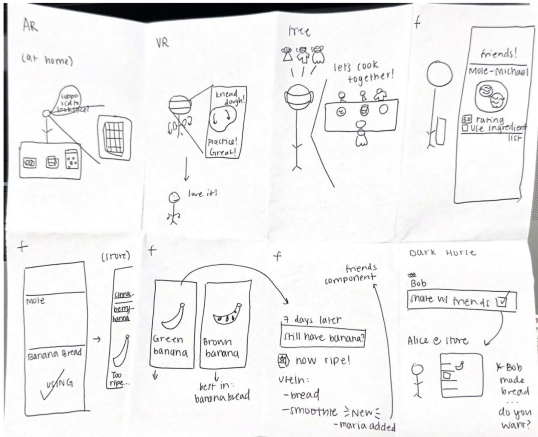 AR
(at home)
VR
knead
dough!
Practice!
Great!
love it!
free
let's cook
together!
f
friends!
Mole-Michael
rating
use ingredient
list
f
Mole
Banana Bread
USING
(store)
Too
ripe...
f
Green
banana
Brown
banana
best in:
banana bread
f
friends
component
7 days later
still have banana?
now ripe!
use in:
-bread
-smoothie
New
-maria added
Dark Horse
Bob
share w/ friends
Alice @ store
Bob
made
bread
...
do you
want?